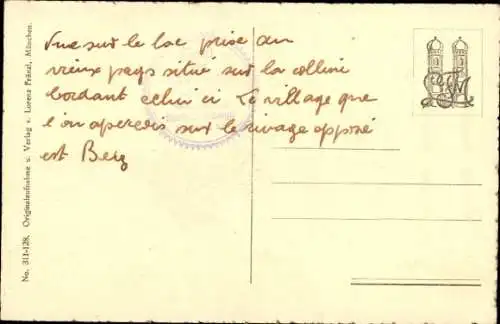 Vue sur le lac prise du
vieux pays situé sur la colline
bordant celui ci Le village que
l'on aperçois sur le rivage opposé
est Berg
No. 311-128. Originalaufnahme u. Verlag v. Lorenz Fränzl, München.